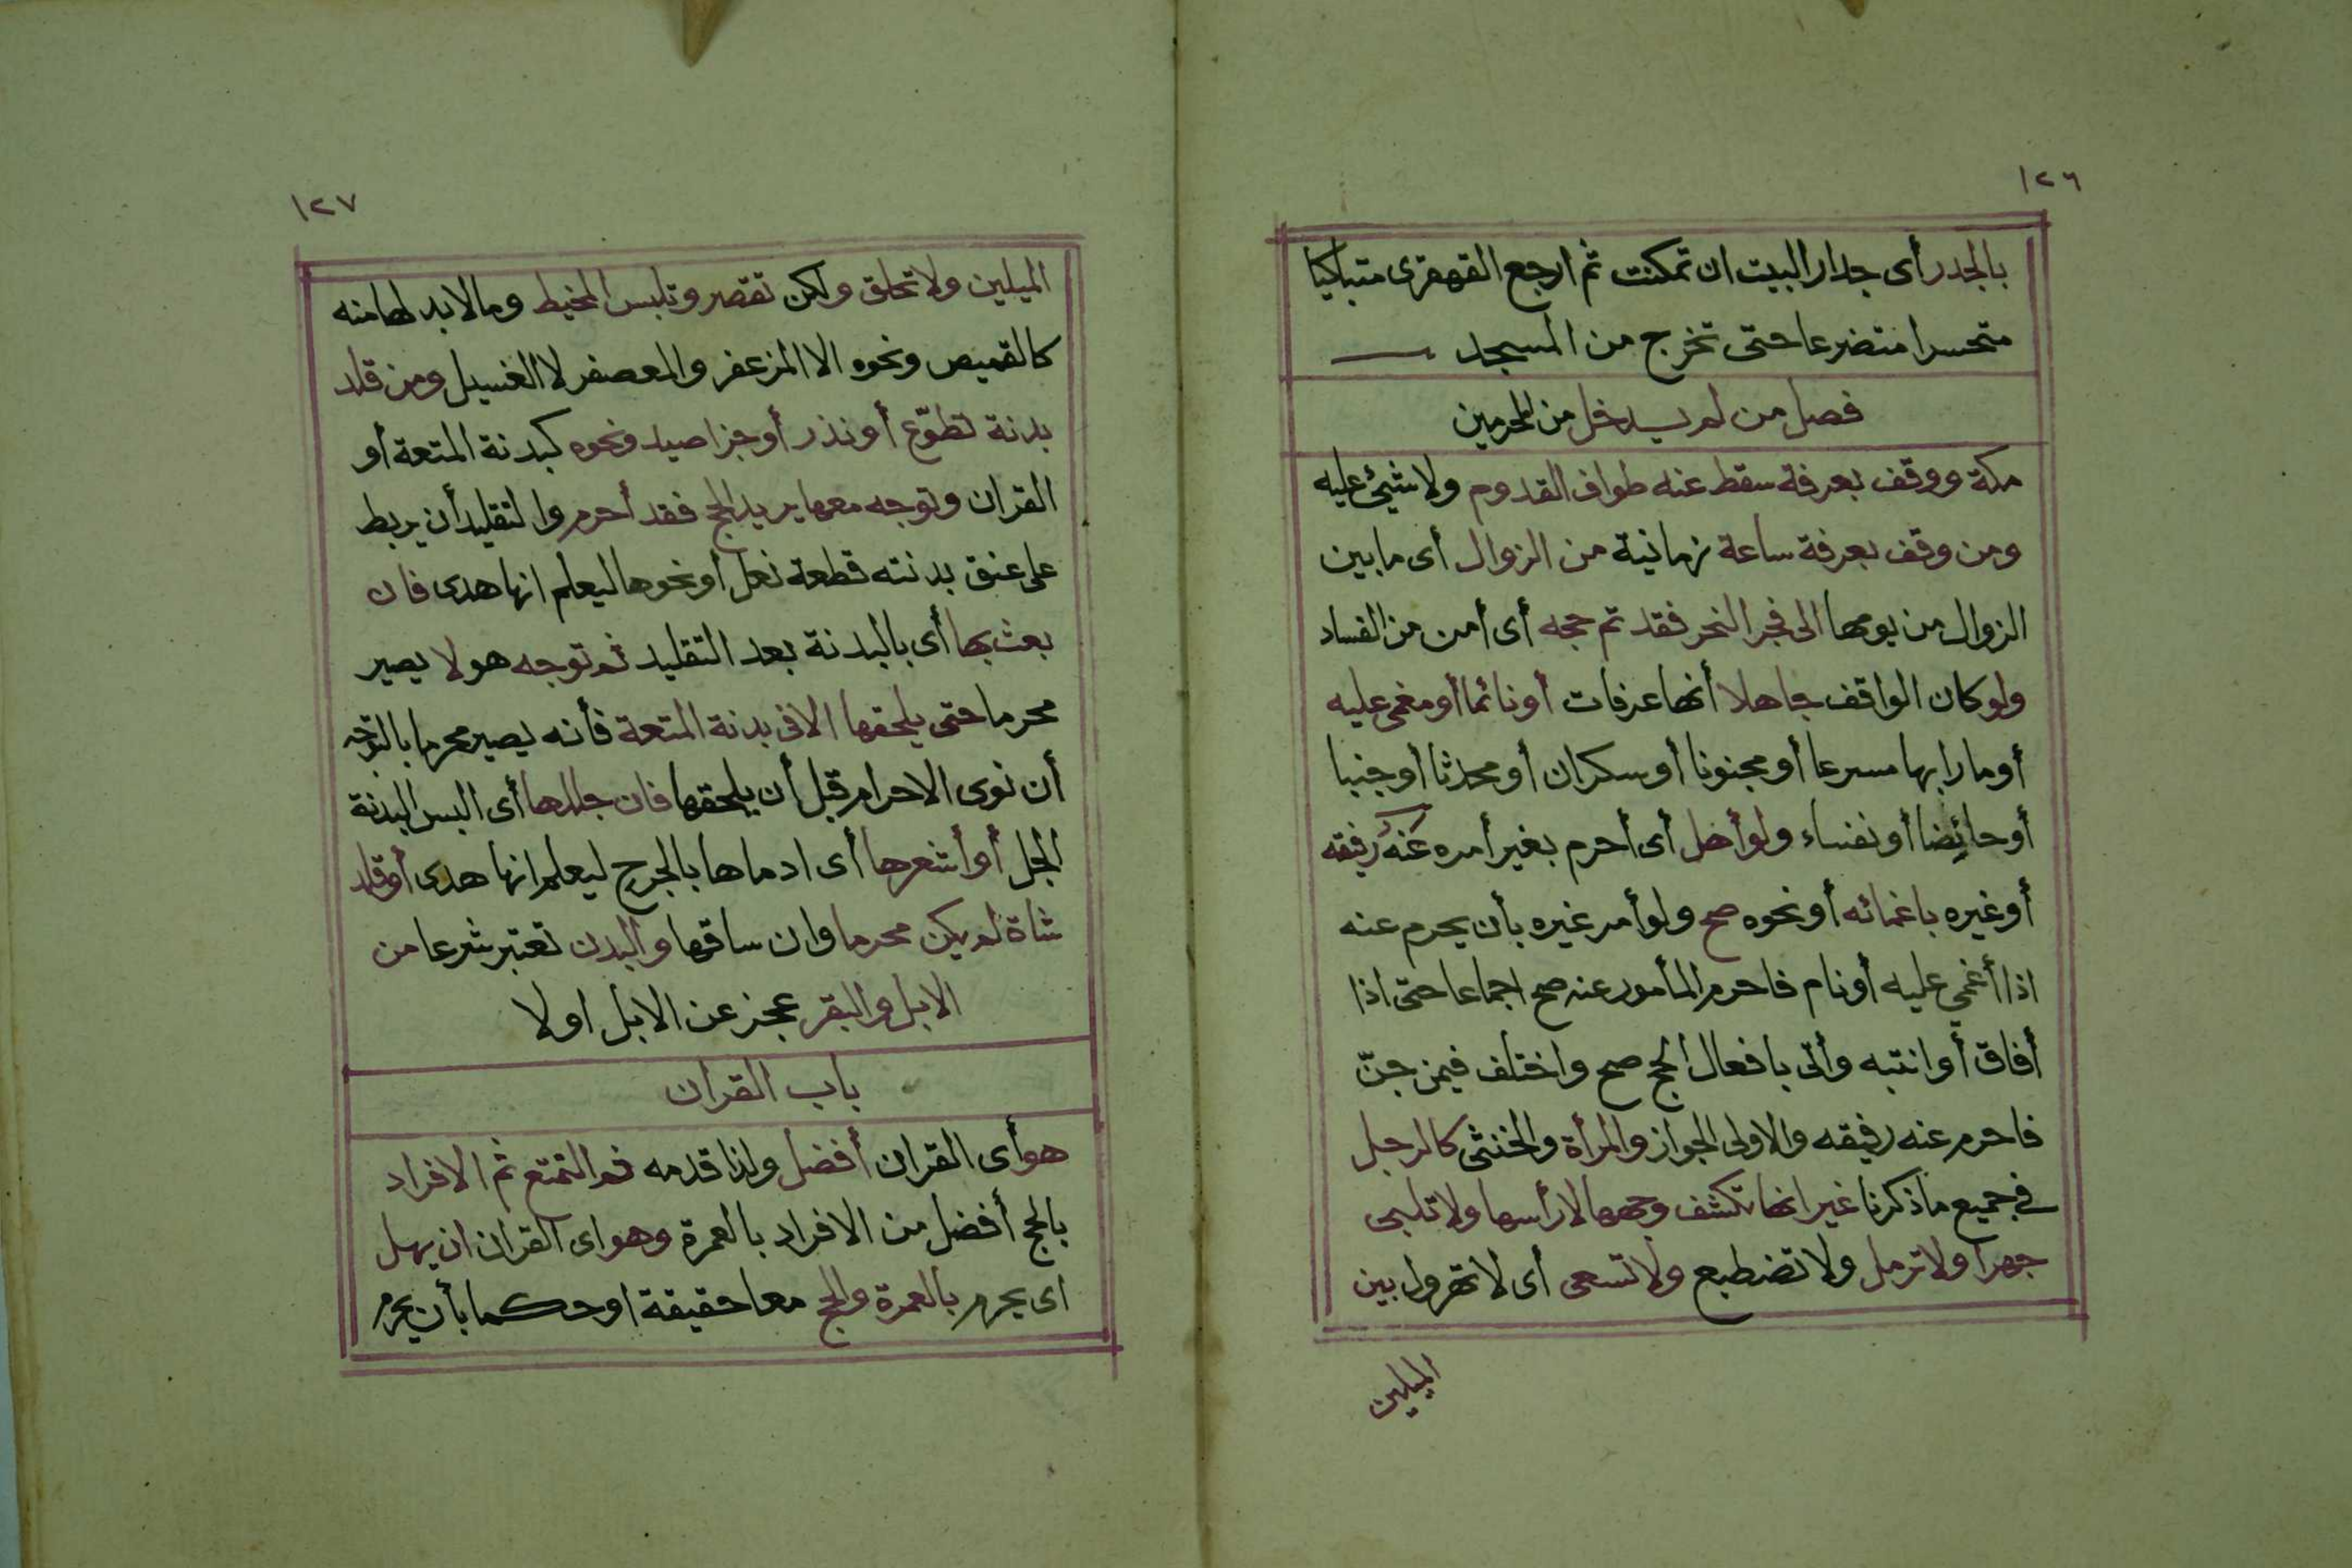 ١٢٦
بالجدر أى جدار البيت ان تمكنت ثم ارجع القهقرى متباكيا
متحسرا متضرعا حتى تخرج من المسجد
فصل من لم يدخل من المحرمين
مكة ووقف بعرفة سقط عنه طواف القدوم ولا شيئ عليه
ومن وقف بعرفة ساعة زمانية من الزوال أى ما بين
الزوال من يومها الى فجر النحر فقد تم حجه أى أمن من الفساد
ولو كان الواقف جاهلا أنها عرفات أو نائما أو مغمى عليه
أو مارا بها مسرعا أو مجنونا أو سكران أو محدثا أو جنبا
أو حائضا أو نفساء ولو أهل أى أحرم بغير أمره عنه رفيقه
أو غيره باغمائه أو نحوه صح ولو أمر غيره بأن يحرم عنه
اذا أغمي عليه أو نام فاحرم المأمور عنه صح اجماعا حتى اذا
أفاق أو انتبه وأتى بافعال الحج صح واختلف فيمن جنّ
فاحرم عنه رفيقه والاولى الجواز والمرأة والخنثى كالرجل
في جميع ما ذكرنا غير انها تكشف وجهها لا رأسها ولا تلبى
جهرا ولا ترمل ولا تضطبع ولا تسعى أى لا تهرول بين
الميلين
١٢٧
الميلين ولا تحلق ولكن تقصر وتلبس المخيط وما لا بد لها منه
كالقميص ونحوه الا المزعفر والمعصفر لا الغسيل ومن قلد
بدنة تطوّع أو نذر أو جزا صيد ونحوه كبدنة المتعة أو
القران وتوجه معها يريد الحج فقد أحرم والتقليد أن يربط
على عنق بدنته قطعة نعل أو نحوها ليعلم انها هدى فان
بعث بها أى بالبدنة بعد التقليد ثم توجه هو لا يصير
محرما حتى يلحقها الا فى بدنة المتعة فأنه يصير محرما بالتوجه
أن نوى الاحرام قبل أن يلحقها فان جللها أى البس البدنة
الجل أو أشعرها أى ادماها بالجرح ليعلم انها هدى أو قلد
شاة لم يكن محرما وان ساقها والبدن تعتبر شرعا من
الابل والبقر عجز عن الابل اولا
باب القران
هو أى القران أفضل ولذا قدمه ثم التمتع ثم الافراد
بالحج أفضل من الافراد بالعمرة وهو اى القران ان يهل
اى يحرم بالعمرة والحج معا حقيقة او حكما بأن يحرم